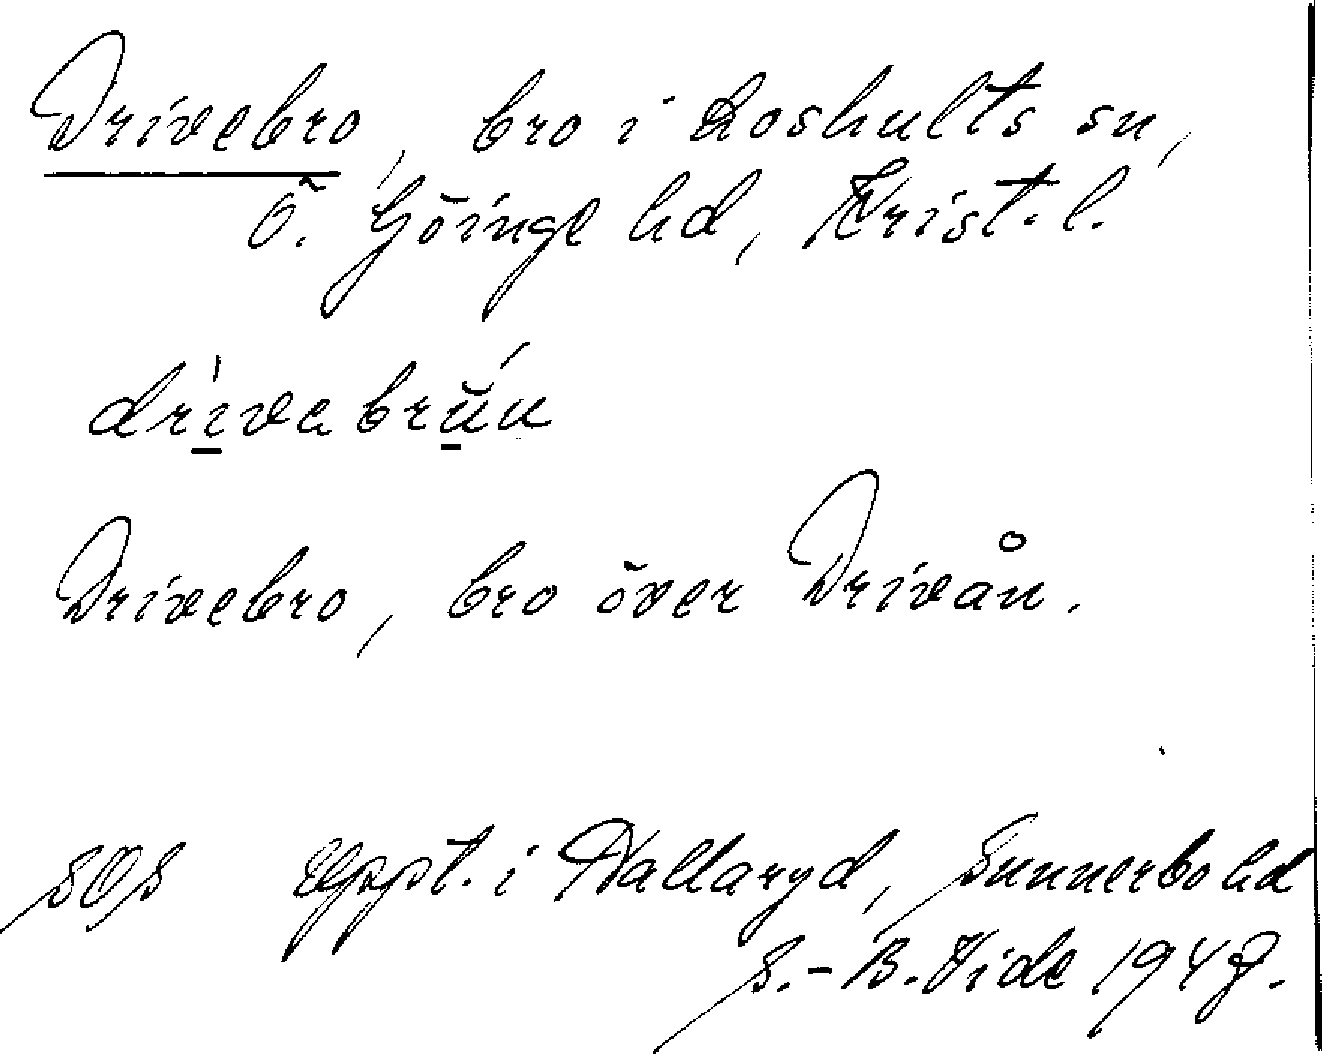 Drivebro, bro i Loshults sn,
Ö. Göinge hd, Krist. l.
drìvabrŭ́u
Drivebro, bro över Drivån.
SOS Uppt. i Hallaryd, Sunnerbo hd
S.-B. Vide 1948.